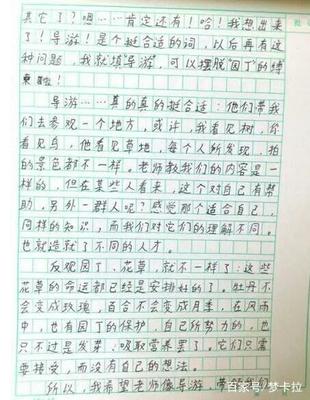 其它了？嗯……肯定还有！哈！我想出来
了！导游！是个挺合适的词，以后再有这
种问题，我就填导游，可以摆脱“园丁”的缚
束啦！
导游……真的真的挺合适：他们带我
们去参观一个地方，或许，我看见树，你
看见鸟，他看见草地，每个人所发现、拍
的景色都不一样。老师教我们的内容是一
样的，但在某些人看来，这个对自己有帮
助，另外一群人呢？感觉那个适合自己，
同样的知识，而我们对它们的理解不同。
也就造就了不同的人才。
反观园丁、花草，就不一样了：这些
花草的命运都已经是安排好的了，牡丹不
会变成玫瑰，百合不会变成月季，在风雨
中，也有园丁的保护，自己所努力的，也
只不过是发芽、吸取营养罢了。它们只需
要接受，而没有自己的想法。
所以，我希望老师像导游，带
百家号/梦卡拉